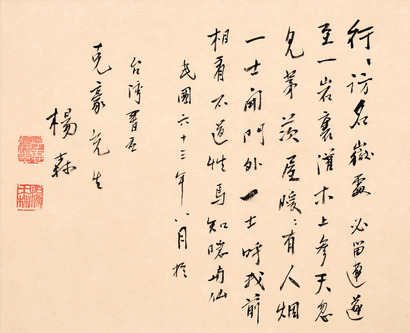 行〻訪名嶽處〻必留連遂
至一岩裏灌木上參天忽
見茅茨屋暖〻有人烟
一士開門外一士呼我前
相看不道姓焉知隱與仙
民國六十三年八月於
台灣
克豪先生
楊森